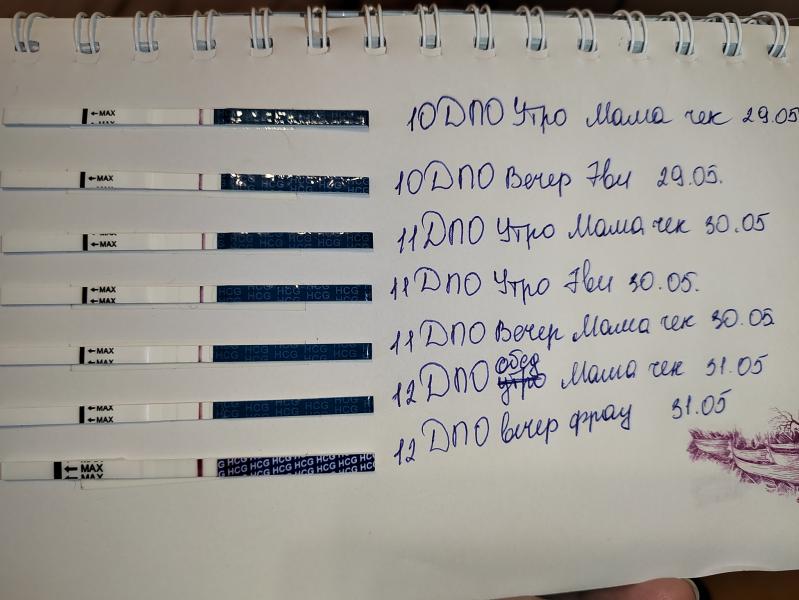 ←MAX
10 ДПО Утро Мама чек 29.05
←MAX HCG HCG HCG HCG
10 ДПО Вечер Эви 29.05.
←MAX HCG HCG HCG HCG
11 ДПО Утро Мама чек 30.05
←MAX HCG HCG HCG HCG HCG
11 ДПО Утро Эви 30.05.
←MAX HCG HCG HCG HCG HCG
11 ДПО Вечер Мама чек 30.05
←MAX HCG HCG HCG HCG HCG
обед
12 ДПО утро Мама чек 31.05
←MAX HCG HCG HCG HCG HCG HCG HCG
12 ДПО вечер фрау 31.05